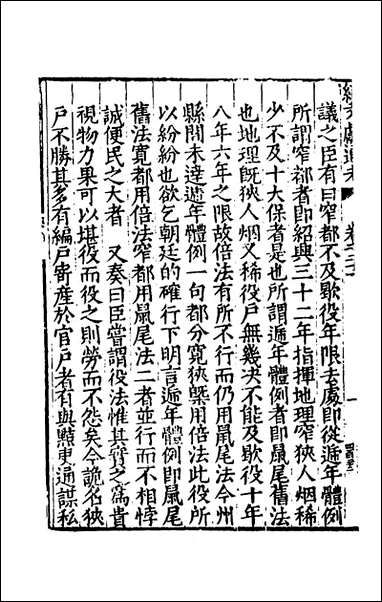 議之臣有曰窄都不及歇役年限去處即從遞年體例
所謂窄都者即紹興三十二年指揮地理窄狹人烟稀
少不及十大保者是也所謂遞年體例者即鼠尾舊法
也地理既狹人烟又稀役户無幾决不能及歇役十年
八年六年之限故倍法有所不行而仍用鼠尾法今州
縣閧未達遞年體例一句都分寛狹槩用倍法此役所
以紛紛也欲乞朝廷的確行下明言遞年體例即鼠尾
舊法寛都用倍法窄都用鼠尾法二者並行而不相悖
誠便民之大者　又奏曰臣嘗謂役法惟其實之爲貴
視物力果可以堪役而役之則勞而不怨矣今詭名狹
户不勝其多有編户寄產於官户者有與黠吏通謀私